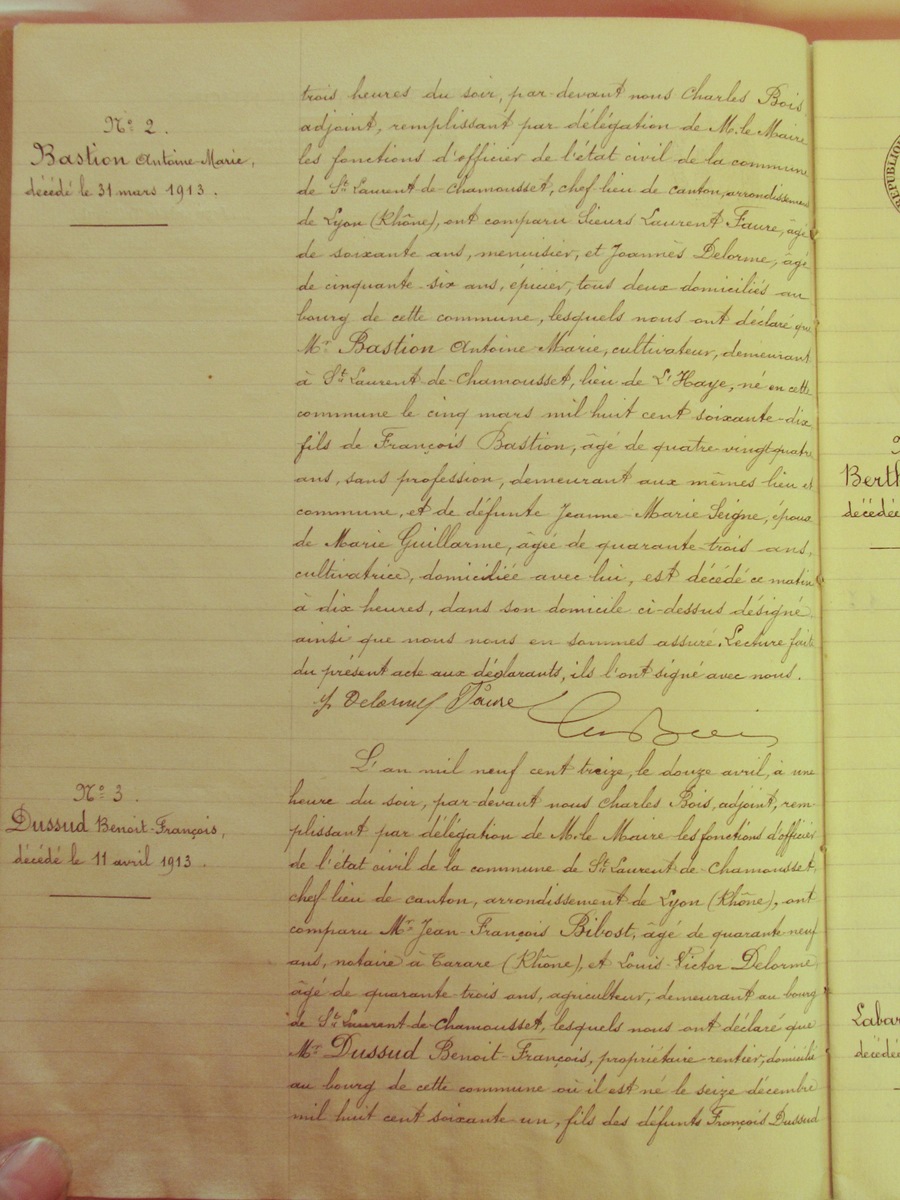 N° 2.
Bastion Antoine-Marie,
décédé le 31 mars 1913.
trois heures du soir, par-devant nous Charles Bois,
adjoint, remplissant par délégation de M. le Maire
les fonctions d'officier de l'état civil de la commune
de St Laurent-de-Chamousset, chef-lieu de canton, arrondissement
de Lyon (Rhône), ont comparu Sieurs Laurent Faure, âgé
de soixante ans, menuisier, et Joannès Delorme, âgé
de cinquante-six ans, épicier, tous deux domiciliés au
bourg de cette commune, lesquels nous ont déclaré que
Mr Bastion Antoine-Marie, cultivateur, demeurant
à St Laurent-de-Chamousset, lieu de L'Haye, né en cette
commune le cinq mars mil huit cent soixante-dix
fils de François Bastion, âgé de quatre-vingt-quatre
ans, sans profession, demeurant aux mêmes lieu et
commune, et de défunte Jeanne-Marie Seigne, époux
de Marie Guillarme, âgée de quarante-trois ans,
cultivatrice, domiciliée avec lui, est décédé ce matin
à dix heures, dans son domicile ci-dessus désigné,
ainsi que nous nous en sommes assuré. Lecture faite
du présent acte aux déclarants, ils l'ont signé avec nous.
J Delorme Faure
Ch Bois
N° 3.
Dussud Benoit-François,
décédé le 11 avril 1913.
L'an mil neuf cent treize, le douze avril, à une
heure du soir, par-devant nous Charles Bois, adjoint, rem-
plissant par délégation de M. le Maire les fonctions d'officier
de l'état civil de la commune de St Laurent-de-Chamousset,
chef-lieu de canton, arrondissement de Lyon (Rhône), ont
comparu Mr Jean-François Bibost, âgé de quarante-neuf
ans, notaire à Tarare (Rhône), et Louis-Victor Delorme,
âgé de quarante-trois ans, agriculteur, demeurant au bourg
de St Laurent-de-Chamousset, lesquels nous ont déclaré que
Mr Dussud Benoit-François, propriétaire-rentier, domicilié
au bourg de cette commune où il est né le seize décembre
mil huit cent soixante-un, fils des défunts François Dussud
REPUBLIQU
Berth
décédée
Labar
décédée